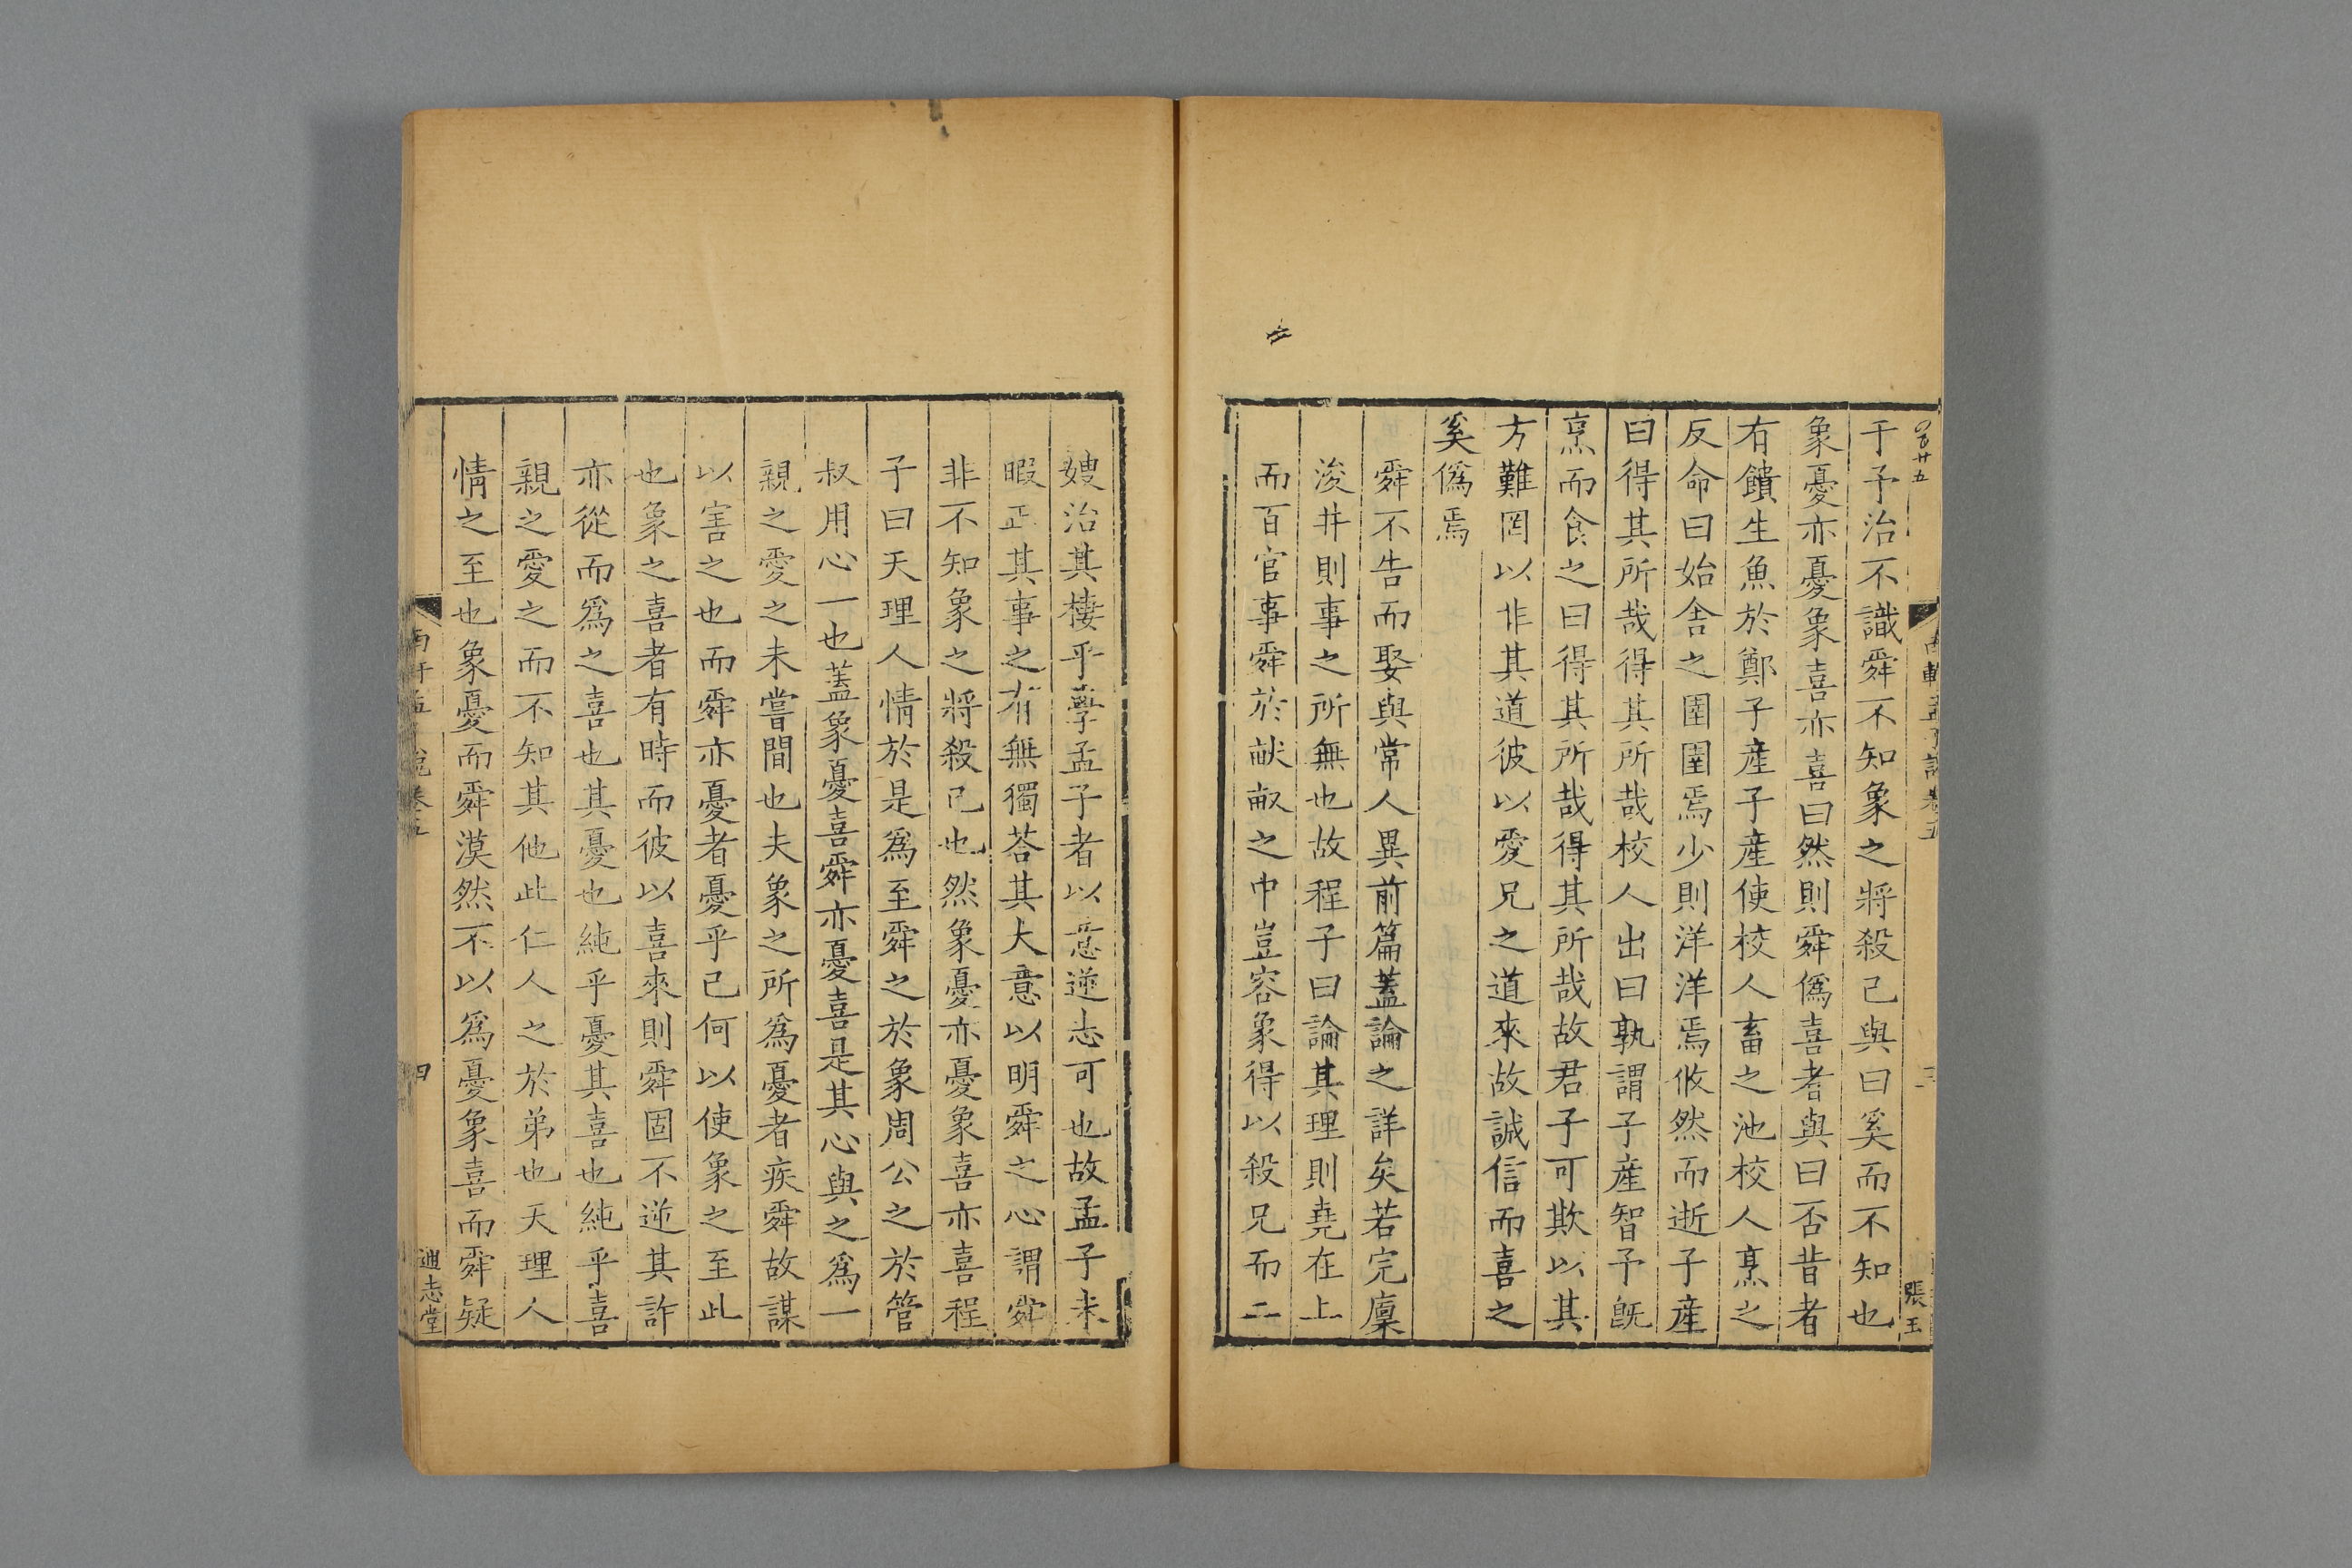 于予治不識舜不知象之將殺己與曰奚而不知也
象憂亦憂象喜亦喜曰然則舜僞喜者與曰否昔者
有饋生魚於鄭子産子産使校人畜之池校人烹之
反命曰始舍之圉圉焉少則洋洋焉攸然而逝子産
曰得其所哉得其所哉校人出曰孰謂子産智予既
烹而食之曰得其所哉得其所哉故君子可欺以其
方難罔以非其道彼以愛兄之道來故誠信而喜之
奚僞焉
舜不告而娶與常人異前篇蓋論之詳矣若完廩
浚井則事之所無也故程子曰論其理則堯在上
而百官事舜於畎畝之中豈容象得以殺兄而二
嫂治其棲乎學孟子者以意逆志可也故孟子未
暇正其事之有無獨荅其大意以明舜之心謂舜
非不知象之將殺己也然象憂亦憂象喜亦喜程
子曰天理人情於是爲至舜之於象周公之於管
叔用心一也蓋象憂喜舜亦憂喜是其心與之爲一
親之愛之未嘗間也夫象之所爲憂者疾舜故謀
以害之也而舜亦憂者憂乎己何以使象之至此
也象之喜者有時而彼以喜來則舜固不逆其詐
亦從而爲之喜也其憂也純乎憂其喜也純乎喜
親之愛之而不知其他此仁人之於弟也天理人
情之至也象憂而舜漠然不以爲憂象喜而舜疑
南軒孟子說卷五
四
通志堂
南軒孟子說卷五
三
張玉